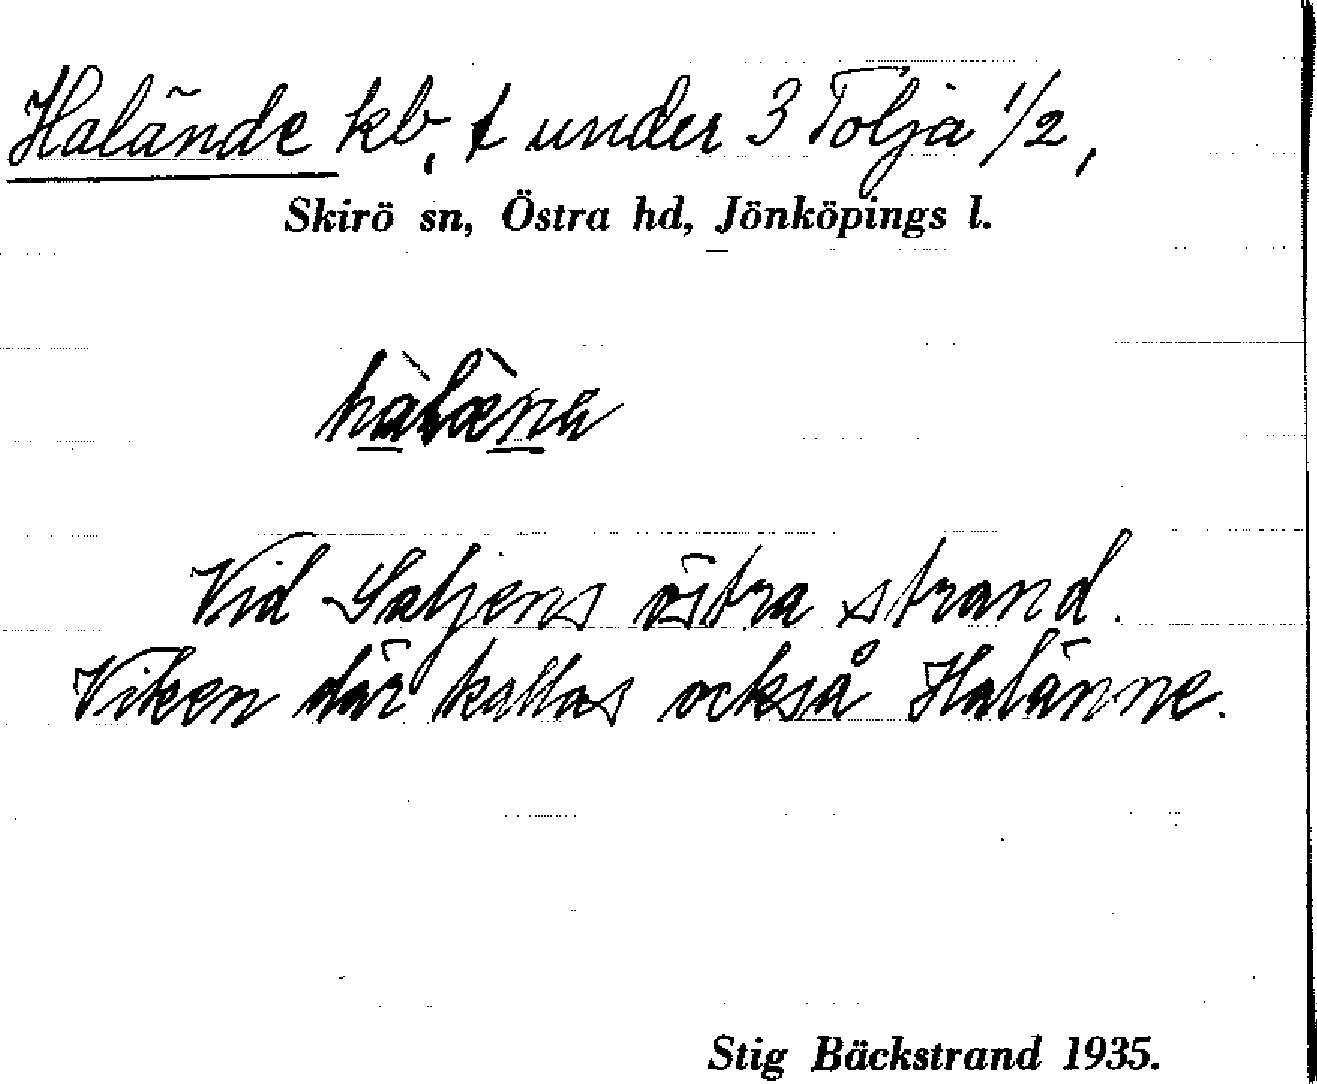 Halände kb, t under 3 Tölja 1/2,
Skirö sn, Östra hd, Jönköpings l.
Vid Saljens östra strand.
Viken där kallas också Halänne.
Stig Bäckstrand 1935.